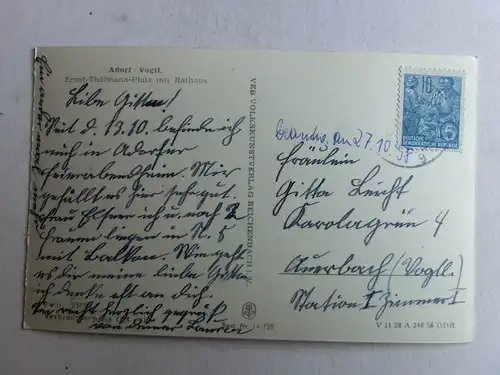 Adorf / Vogtl.
Ernst-Thälmann-Platz mit Rathaus
Liebe Gitta!
Seit d. 13.10. befinde ich
mich in Adorfer
Feierabendheim. Mir
gefällt es hier sehr gut.
Frau ich u. noch 2
Frauen liegen in N. 5
mit Balkon. Wie geht
es dir meine liebe Gitta
ich denke oft an dich.
sei recht herzlich gegrüßt
von deiner
VEB VOLKSKUNSTVERLAG REICHENBACH I. V.
beantw. am 27.10.58
10
DEUTSCHE
DEMOKRATISCHE REPUBLIK
Fräulein
Gitta Leicht
Karolagrün 4
Auerbach (Vogtl.)
Station I Zimmer 1
V 11 28 A 240 56 DDR